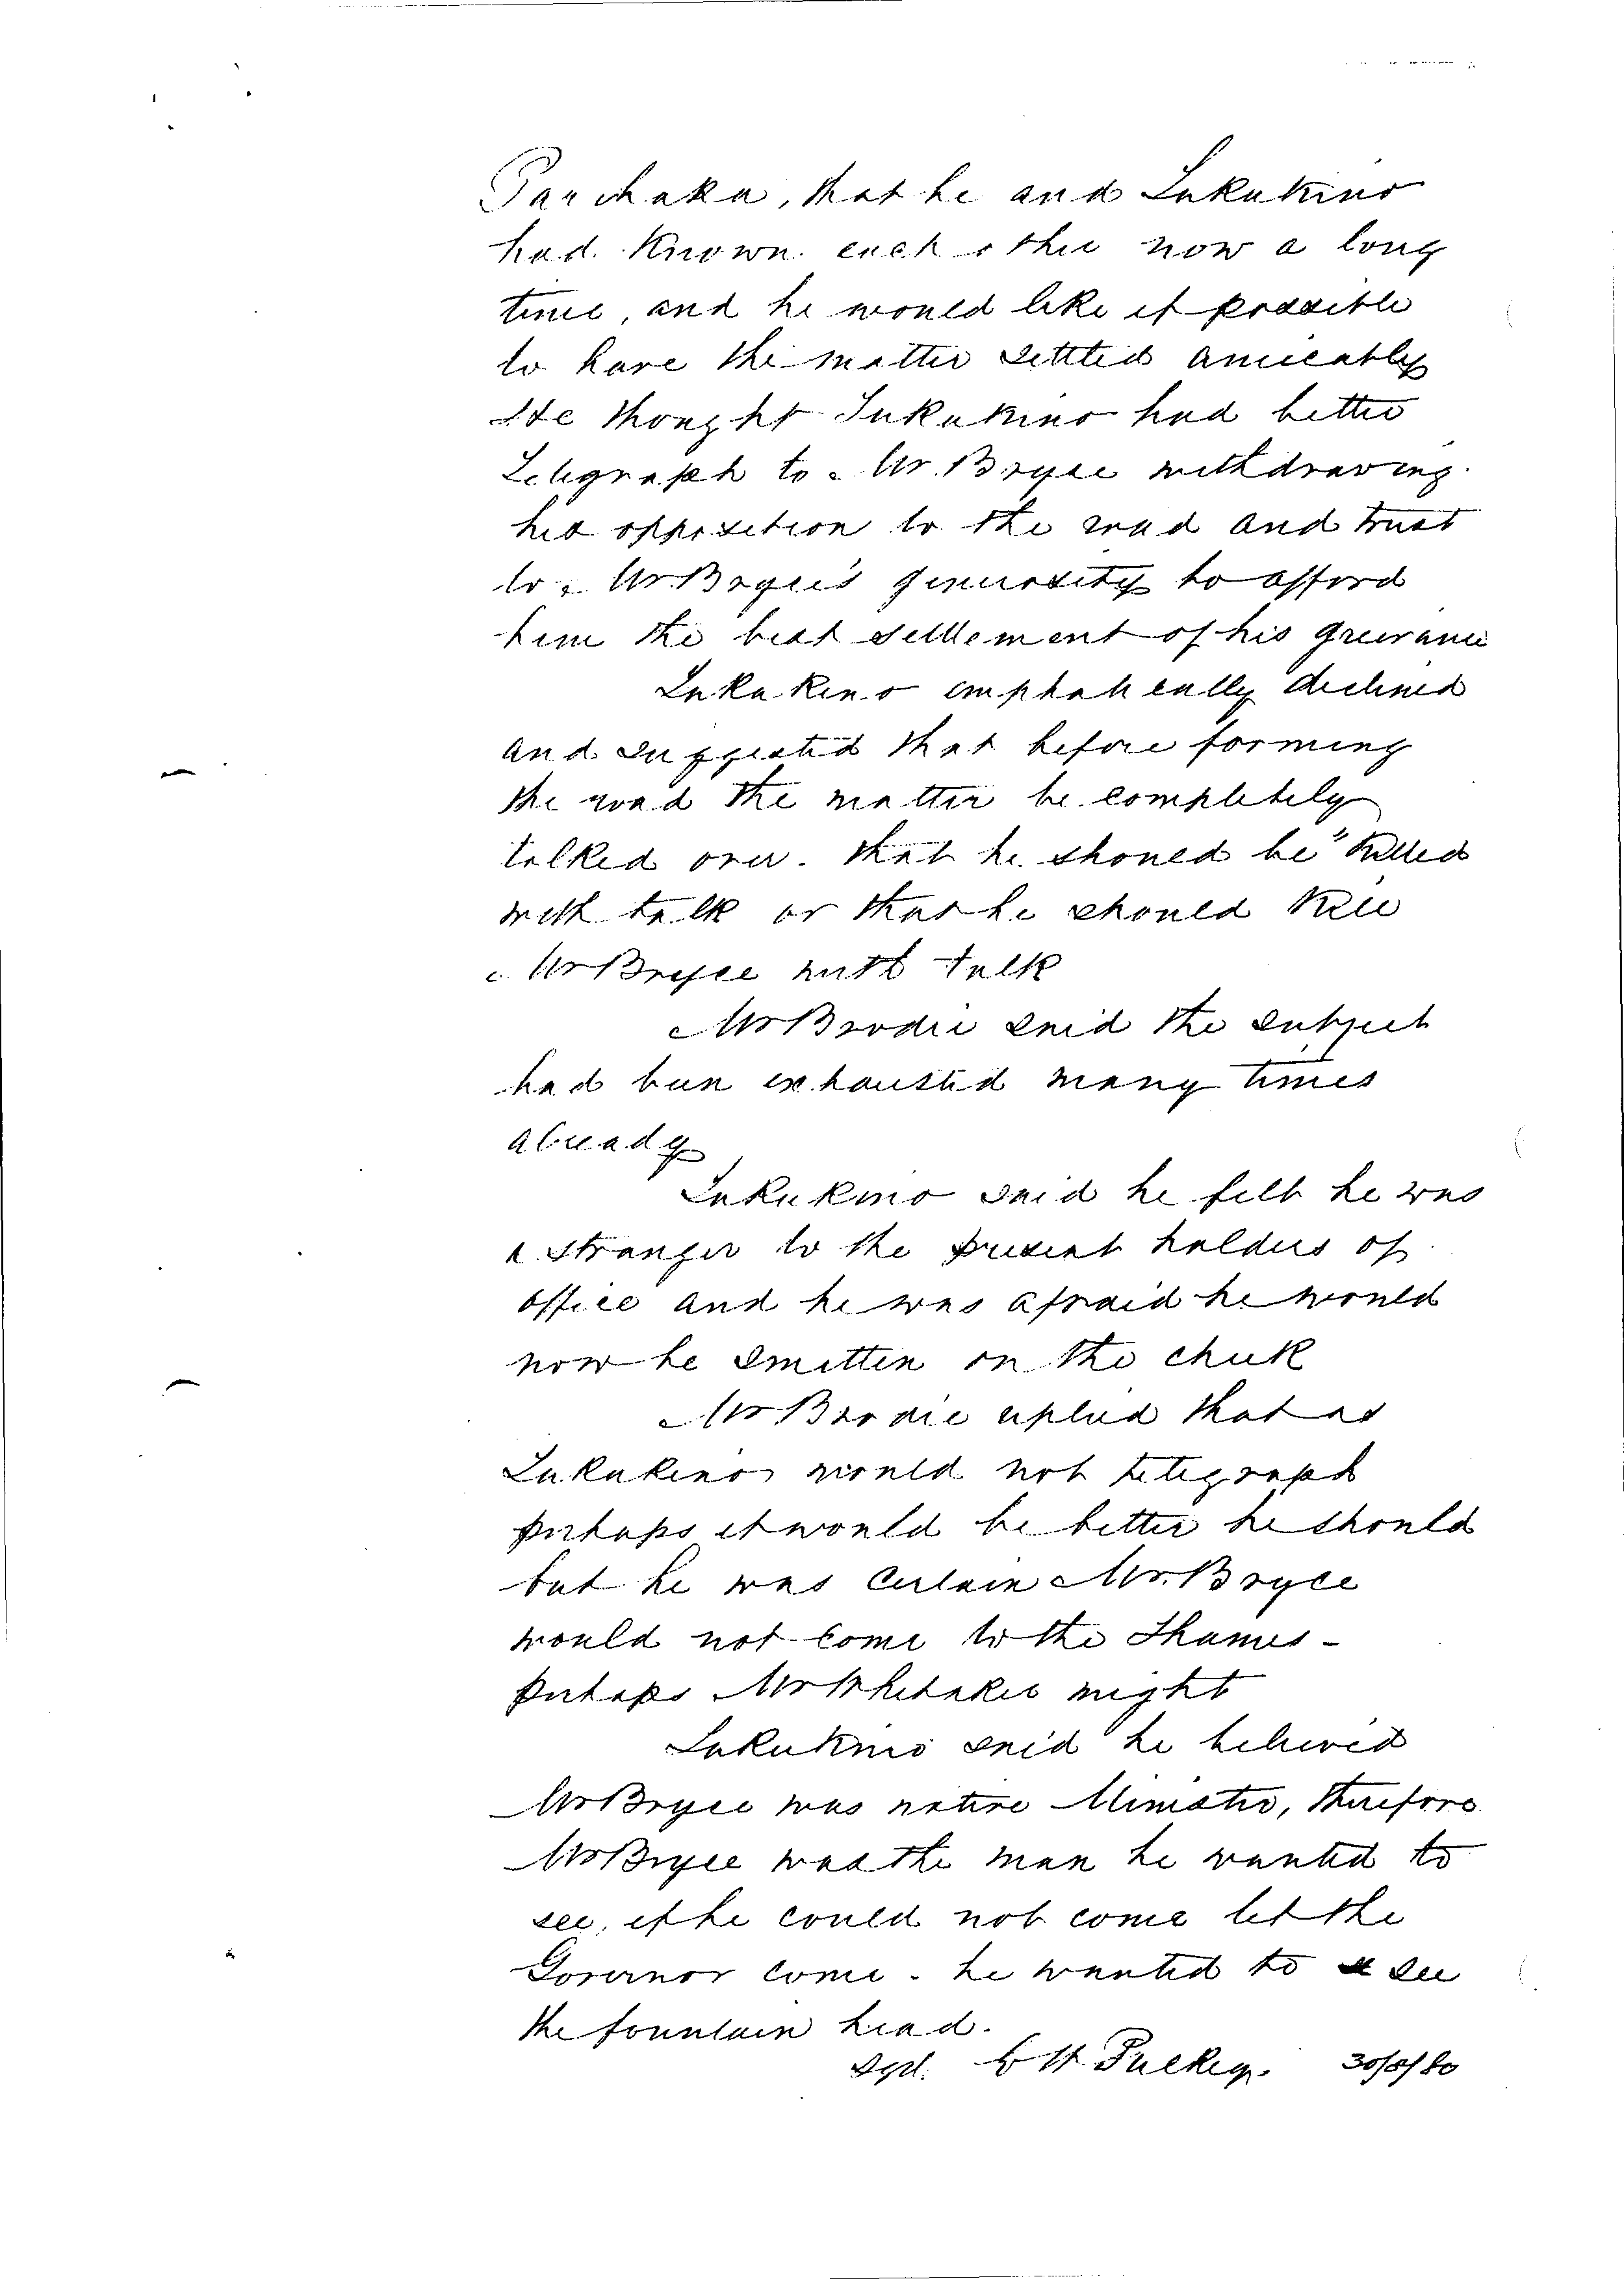 Parihaka, that he and Tukukino
had known each other now a long
time, and he would like if possible
to have the matter settled amicably
He thought Tukukino had better
Telegraph to Mr. Bryce withdrawing
his opposition to the road and trust
to Mr Bryce's generosity to afford
him the best settlement of his grievance
Tukukino emphatically declined
and suggested that before forming
the road the matter be completely
talked over. that he should be "killed
with talk or that he should kill
Mr Bryce with talk
Mr Brodie said the subject
had been exhausted many times
already
Tukukino said he felt he was
a stranger to the present holders of
office and he was afraid he would
now be smitten on the cheek
Mr Brodie replied that as
Tukukino would not telegraph
perhaps it would be better he should
but he was certain Mr. Bryce
would not come to the Thames -
perhaps Mr Whitaker might
Tukukino said he believed
Mr Bryce was native Minister, therefore
Mr Bryce was the man he wanted to
see, if he could not come let the
Governor come. he wanted to see
the fountain head.
Sgd. Puckey.